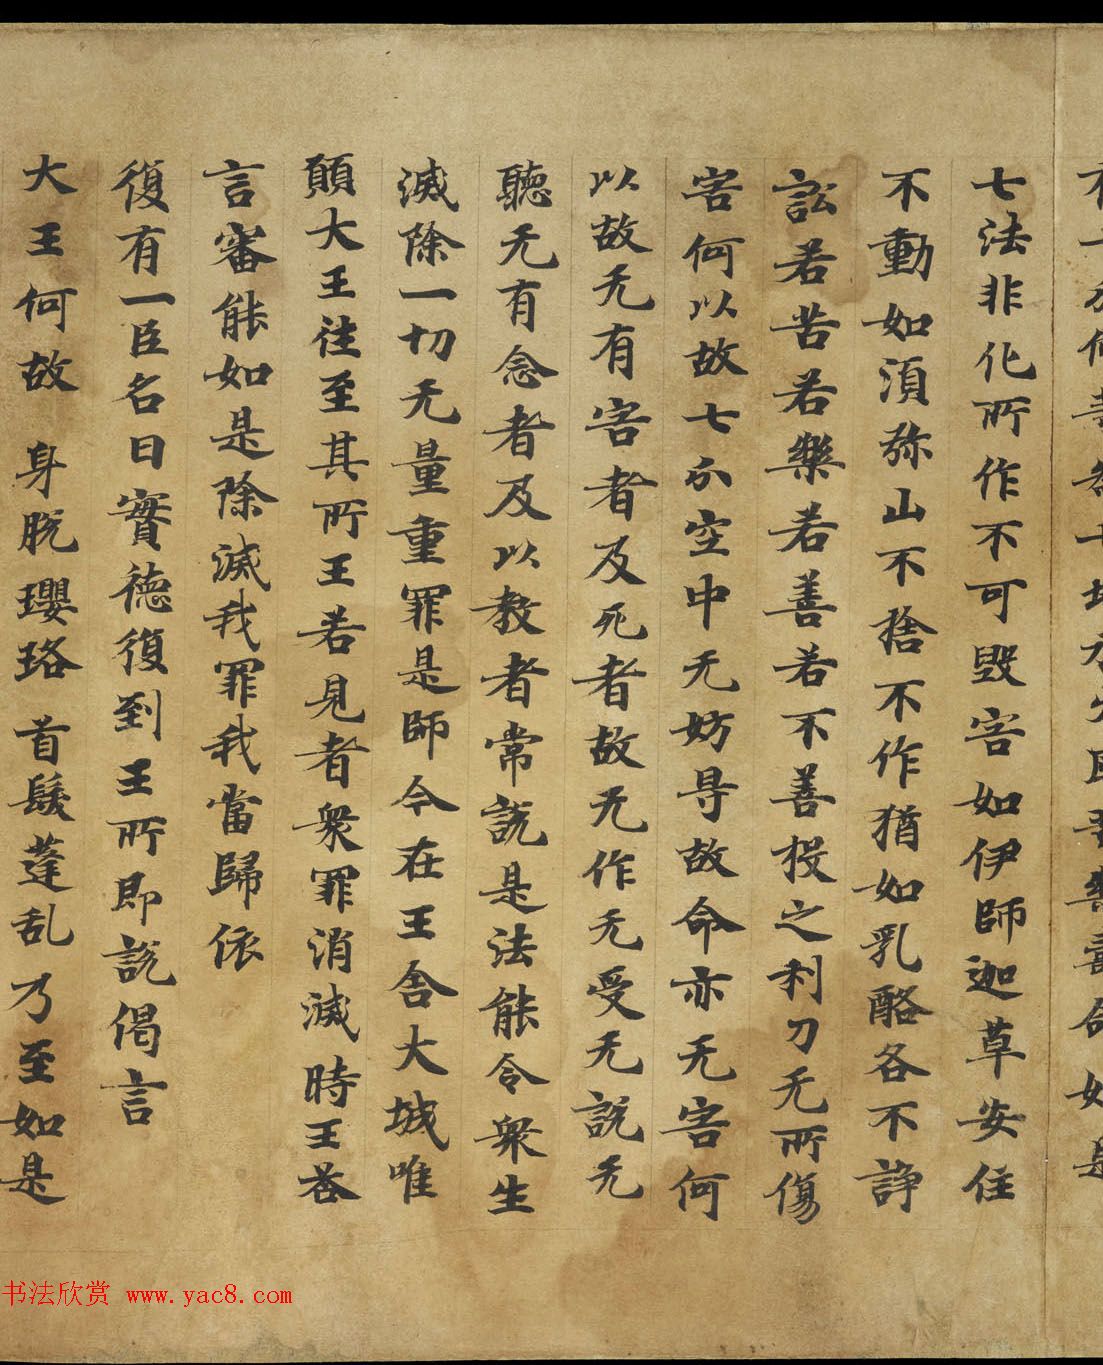 七法非化所作不可毀害如伊師迦草安住
不動如湏弥山不捨不作猶如乳酪各不諍
訟若苦若樂若善若不善投之利刀无所傷
害何以故七分空中无妨导故命亦无害何
以故无有害者及死者故无作无受无說无
聽无有念者及以教者常說是法能令衆生
滅除一切无量重罪是師今在王舍大城唯
願大王往至其所王若見者衆罪消滅時王荅
言審能如是除滅我罪我當歸依
復有一臣名曰實德復到王所即說偈言
大王何故 身脱瓔珞 首髮蓬乱乃至如是
书法欣赏 www.yac8.com